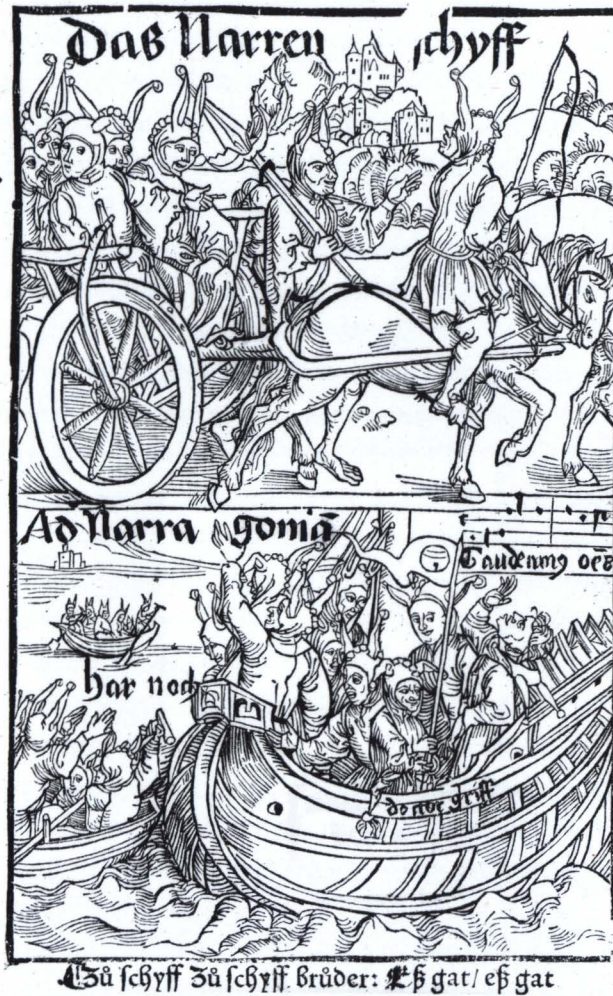 Das Narren schyff
Ad Narragoniā
Gaudeamꝰ oēs
har noch
doctor griff
Zů schyff Zů schyff brůder: Eß gat/ eß gat